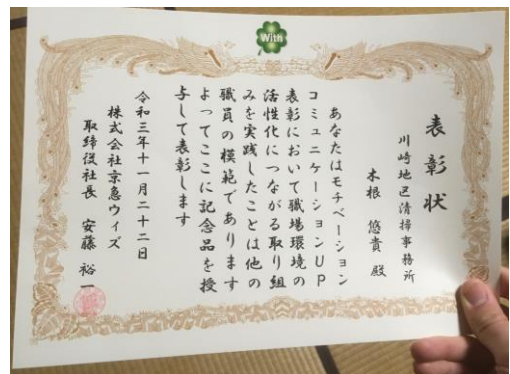 With
表彰状
川崎地区清掃事務所
木根 悠貴 殿
あなたはモチベーション
コミュニケーションUP
表彰において職場環境の
活性化につながる取り組
みを実践したことは他の
職員の模範であります
よってここに記念品を授
与して表彰します
令和三年十一月二十二日
株式会社京急ウィズ
取締役社長 安藤 裕一